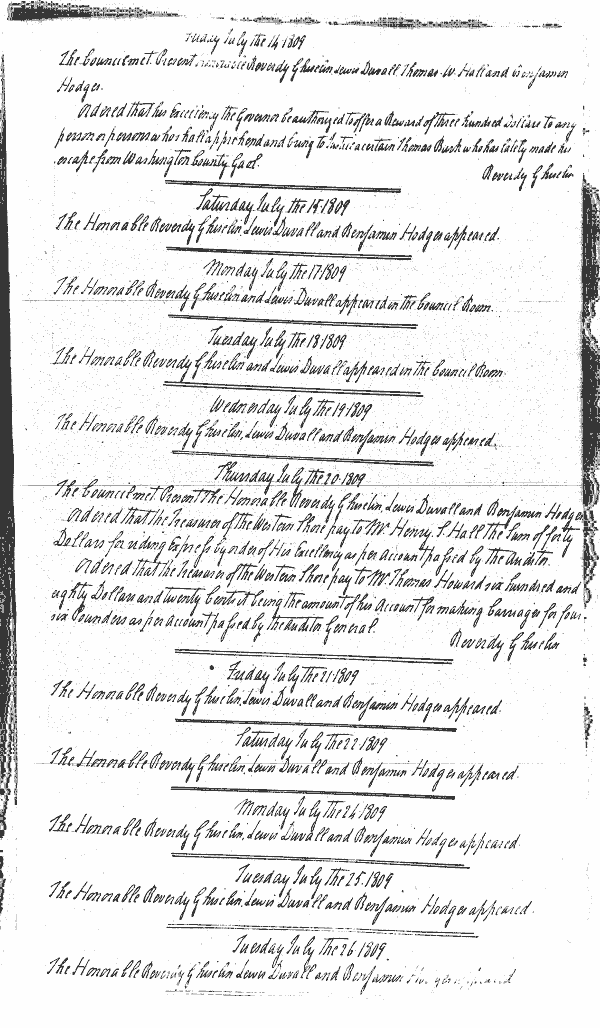 Friday July the 14 1809
The Council met. Present Honorable Reverdy Ghiselin, Lewis Duvall, Thomas W. Hall and Benjamin
Hodges.
Ordered that his Excellency the Governor be authorized to offer a Reward of three hundred Dollars to any
person or persons who shall apprehend and bring to Justice a certain Thomas Burk who has lately made his
escape from Washington County Gaol.
Reverdy Ghiselin
Saturday July the 15 1809
The Honorable Reverdy Ghiselin, Lewis Duvall and Benjamin Hodges appeared.
Monday July the 17 1809
The Honorable Reverdy Ghiselin and Lewis Duvall appeared in the Council Room.
Tuesday July the 18 1809
The Honorable Reverdy Ghiselin and Lewis Duvall appeared in the Council Room.
Wednesday July the 19 1809
The Honorable Reverdy Ghiselin, Lewis Duvall and Benjamin Hodges appeared.
Thursday July the 20 1809
The Council met Present The Honorable Reverdy Ghiselin, Lewis Duvall and Benjamin Hodges
Ordered that the Treasurer of the Western Shore pay to Mr. Henry. S. Hall the Sum of forty
Dollars for riding Express by order of His Excellency as per Account passed by the Auditor.
Ordered that the Treasurer of the Western Shore pay to Mr Thomas Howard six hundred and
eighty Dollars and twenty Cents it being the amount of his Account for making Carriages for four
six Pounders as per Account passed by the Auditor General.
Reverdy Ghiselin
Friday July the 21 1809
The Honorable Reverdy Ghiselin, Lewis Duvall and Benjamin Hodges appeared.
Saturday July the 22 1809
The Honorable Reverdy Ghiselin, Lewis Duvall and Benjamin Hodges appeared.
Monday July the 24 1809
The Honorable Reverdy Ghiselin, Lewis Duvall and Benjamin Hodges appeared.
Tuesday July the 25. 1809
The Honorable Reverdy Ghiselin, Lewis Duvall and Benjamin Hodges appeared.
Tuesday July the 26 1809.
The Honorable Reverdy Ghiselin Lewis Duvall and Benjamin Hodges appeared